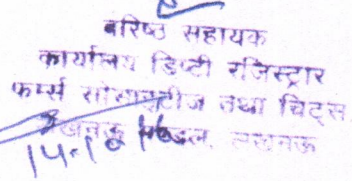 वरिष्ठ सहायक
कार्यालय डिप्टी रजिस्ट्रार
फर्म्स सोसाइटीज तथा चिट्स,
लखनऊ मण्डल, लखनऊ